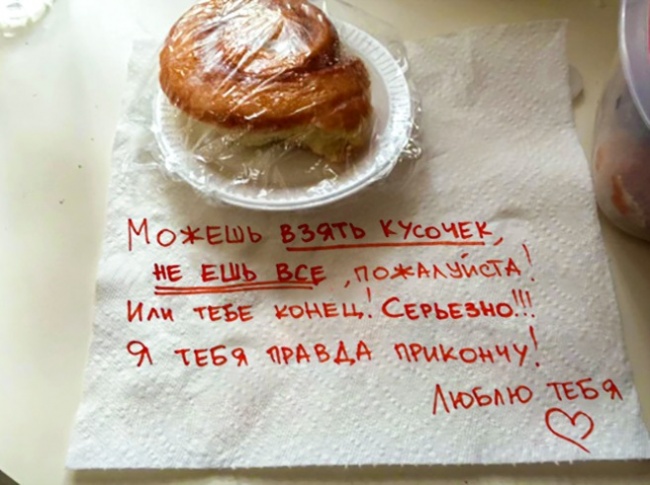 Можешь взять кусочек,
не ешь все, пожалуйста!
Или тебе конец! Серьезно!!!
Я тебя правда прикончу!
Люблю тебя